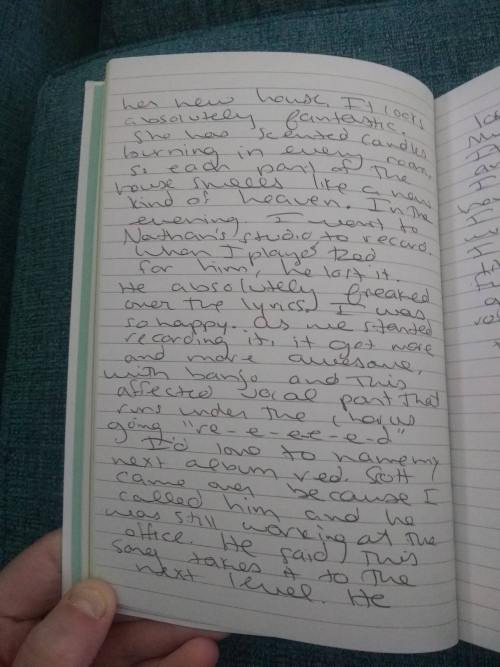 her new house. It looks
absolutely fantastic.
She has scented candles
burning in every room,
so each part of the
house smells like a new
kind of heaven. In the
evening I went to
Nathan's studio to record.
When I played Red
for him, he lost it.
He absolutely freaked
over the lyrics. I was
so happy. As we started
recording it, it got more
and more awesome,
with banjo and this
affected vocal part that
runs under the chorus
going "re-e-e-e-e-d"
I'd love to name my
next album red. Scott
came over because I
called him and he
was still working at the
office. He said, this
song takes it to the
next level. He